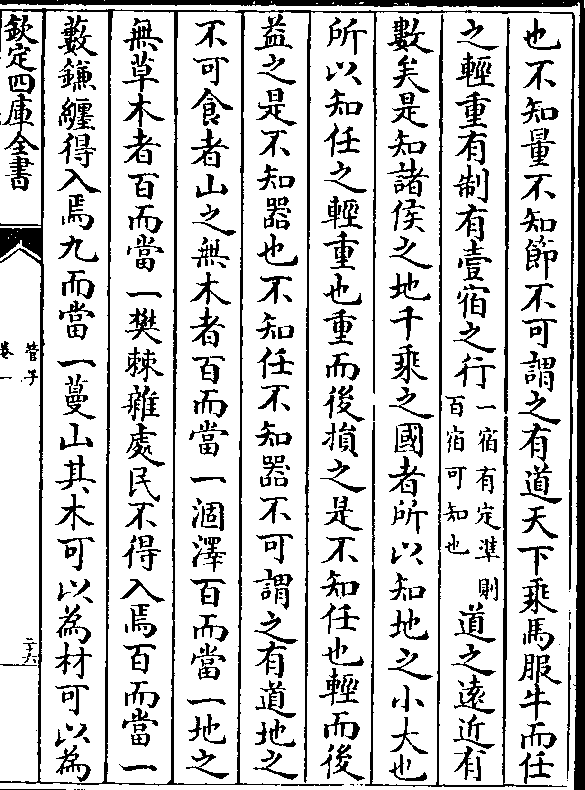 也不知量不知節不可謂之有道天下乘馬服牛而任
之輕重有制有壹宿之行一宿有定準則百宿可知也道之遠近有
數矣是知諸侯之地千乘之國者所以知地之小大也
所以知任之輕重也重而後損之是不知任也輕而後
益之是不知器也不知任不知器不可謂之有道地之
不可食者山之無木者百而當一涸澤百而當一地之
無草木者百而當一樊棘雜處民不得入焉百而當一
藪鎌纆得入焉九而當一蔓山其木可以為材可以為
欽定四庫全書
管子
卷一
二十六